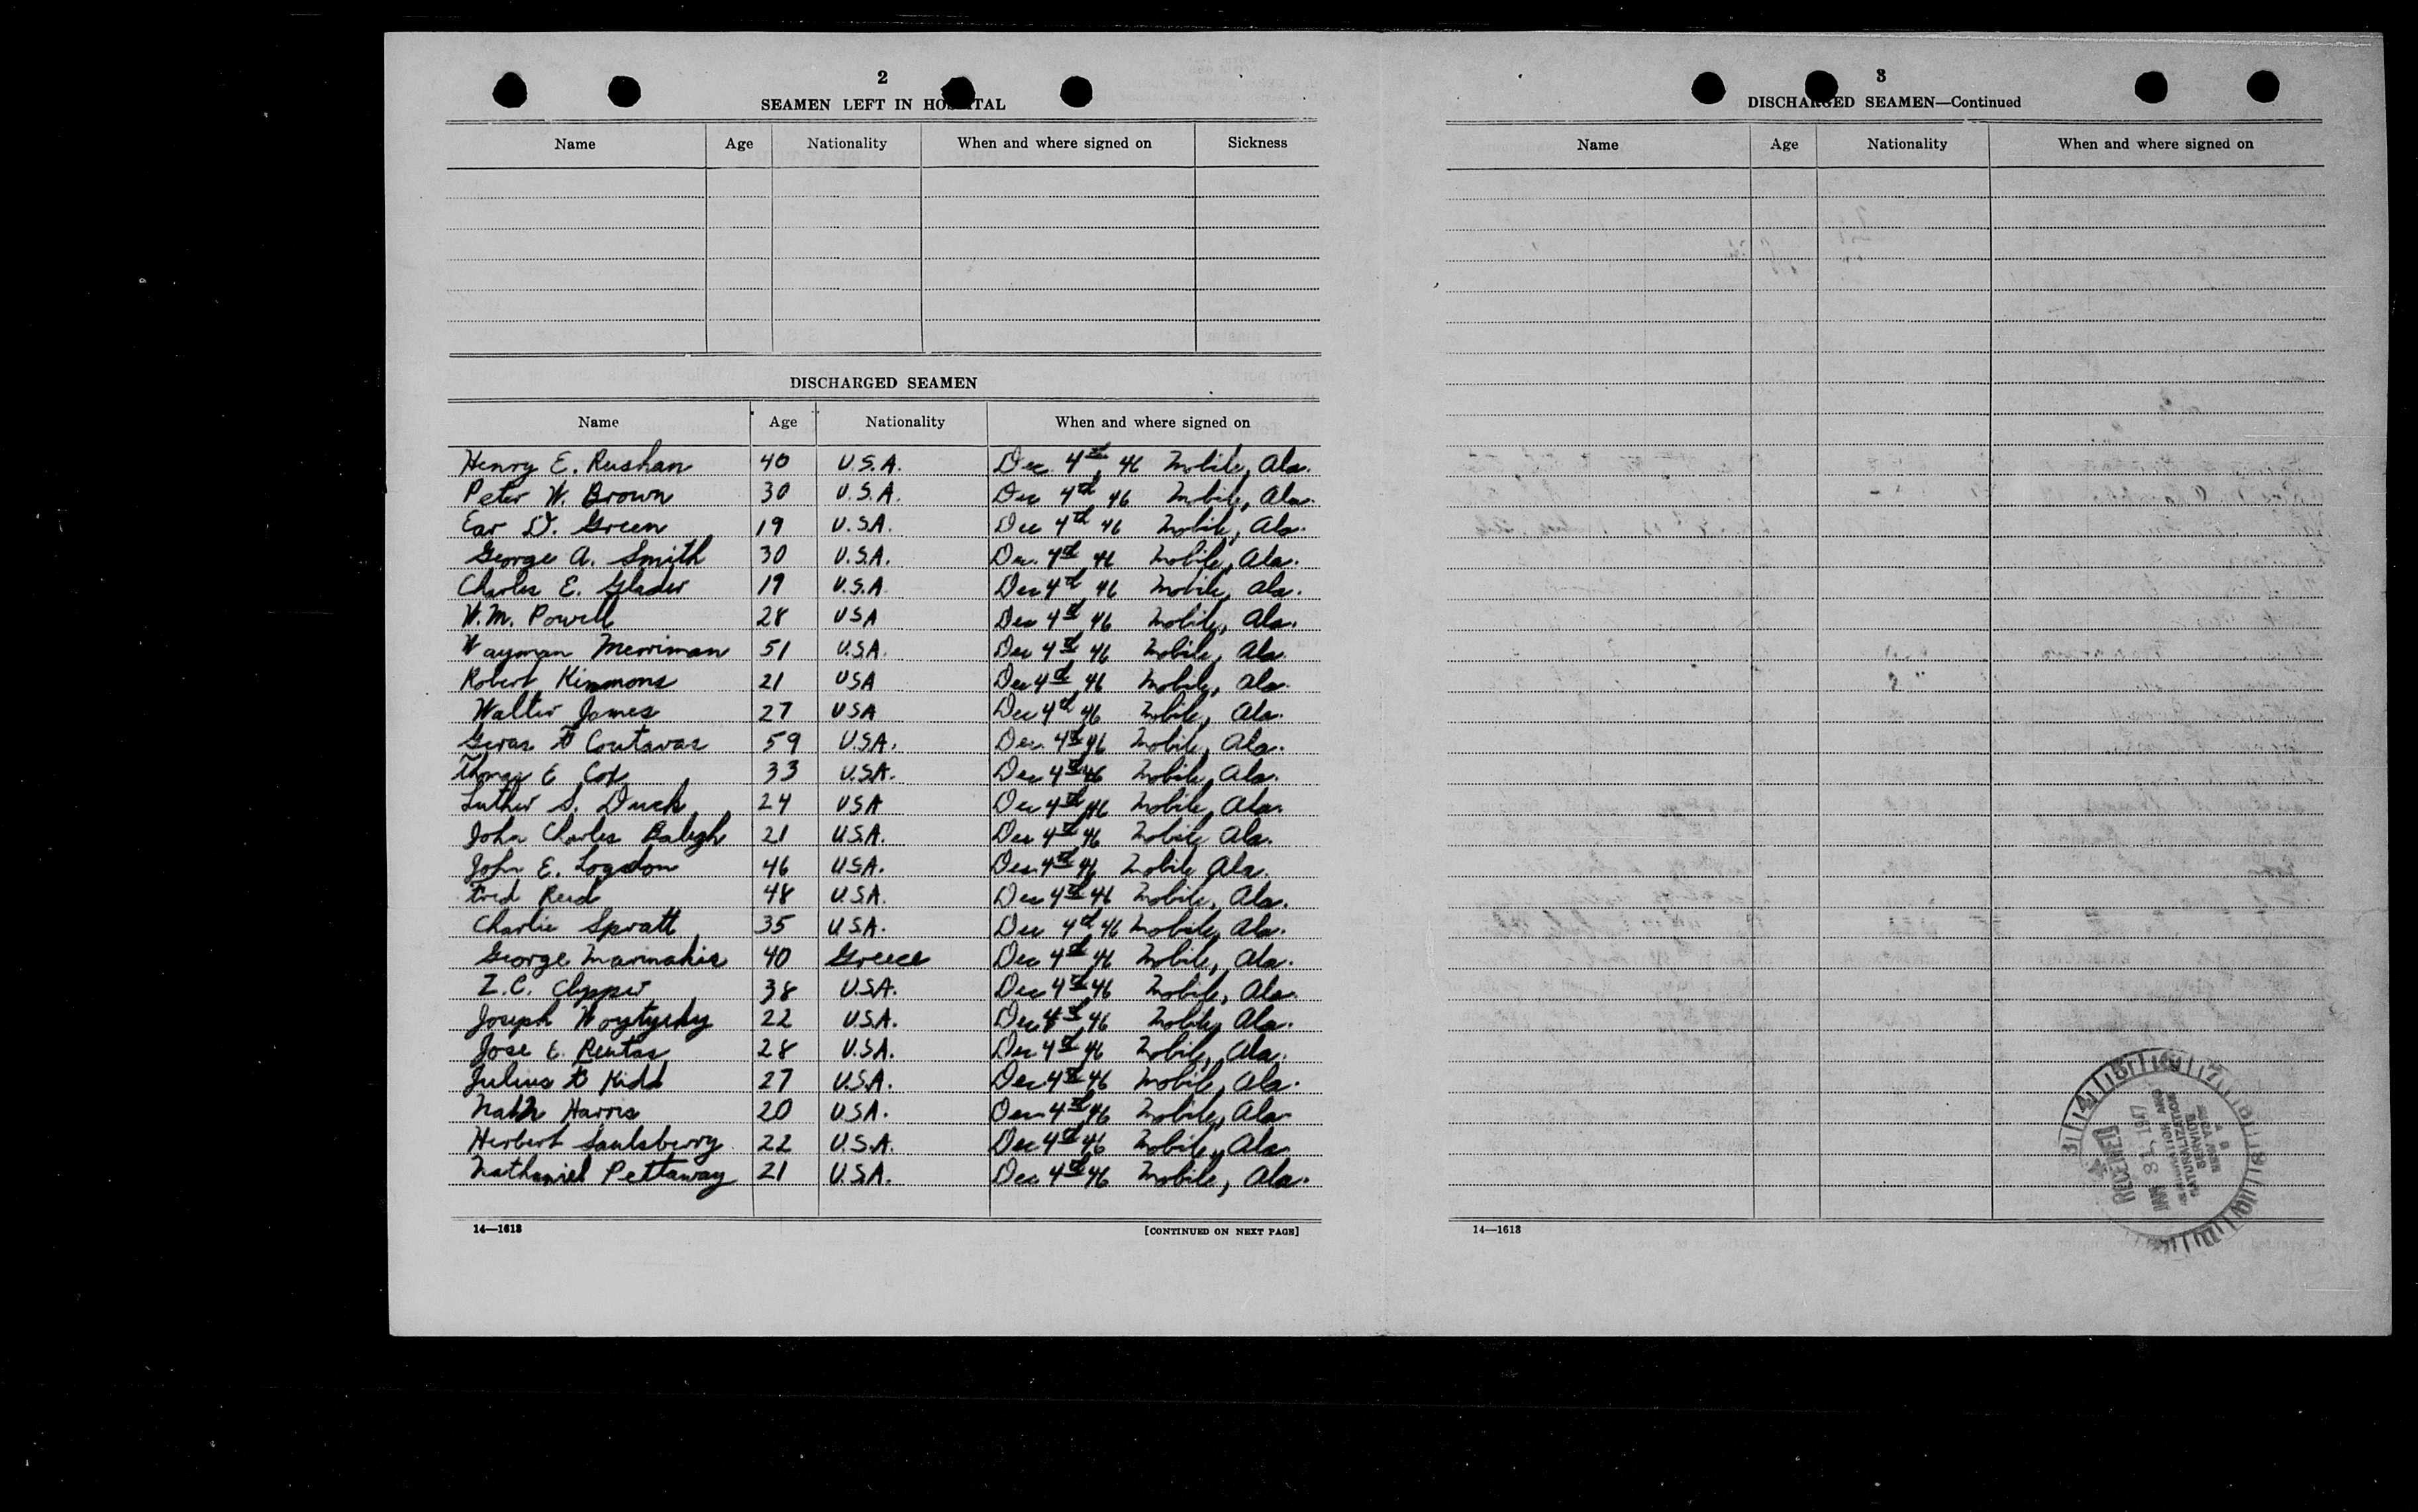 2
SEAMEN LEFT IN HOSPITAL
Name Age Nationality When and where signed on Sickness
DISCHARGED SEAMEN
Name Age Nationality When and where signed on
Henry E. Rushan 40 U.S.A. Dec. 4th, 46 Mobile, Ala.
Peter W. Brown 30 U.S.A. Dec 4th 46 Mobile, Ala.
Ear D. Green 19 U.S.A. Dec 4th 46 Mobile, Ala.
George A. Smith 30 U.S.A. Dec. 4th, 46 Mobile, Ala.
Charles E. Glader 19 U.S.A Dec 4th, 46 Mobile, Ala.
W.M. Powell 28 USA Dec 4th, 46 Mobile, Ala.
Wayman Merriman 51 U.S.A. Dec 4th 46 Mobile, Ala
Robert Kimmons 21 USA Dec 4th, 46 Mobile, Ala.
Walter James 27 USA Dec 4th 46 Mobile, Ala.
Coutavas 59 U.S.A. Dec. 4th 46 Mobile, Ala.
Thomas E Cox 33 U.S.A. Dec 4th 46 Mobile, Ala.
Luther S. Duck 24 USA Dec 4th, 46 Mobile, Ala.
John Charles Balegh 21 U.S.A. Dec 4th 46 Mobile Ala.
John E. Logsdon 46 U.S.A. Dec. 4th 46 Mobile Ala.
Fred Reed 48 U.S.A. Dec 4th 46 Mobile, Ala.
Charlie Spratt 35 U.S.A. Dec 4th 46 Mobile, Ala.
George Marinakis 40 Greece Dec 4th, 46 Mobile, Ala.
Z.C. Clypper 38 U.S.A. Dec 4th 46 Mobile, Ala.
Joseph 22 U.S.A. Dec 4th, 46 Mobile, Ala.
Jose E. Rentas 28 U.S.A. Dec. 4th 46 Mobile, Ala.
Julius Kidd 27 U.S.A. Dec. 4th 46 Mobile, Ala.
Harris 20 U.S.A. Dec 4th 46 Mobile, Ala
Herbert Saulsberry 22 U.S.A. Dec 4th 46 Mobile, Ala
Nathaniel Pettaway 21 U.S.A. Dec 4th 46 Mobile, Ala.
14—1613 [CONTINUED ON NEXT PAGE]
3
DISCHARGED SEAMEN—Continued
Name Age Nationality When and where signed on
RECEIVED
JAN 8 1947
IMMIGRATION AND
NATURALIZATION
SERVICE
NEW YORK
14—1613